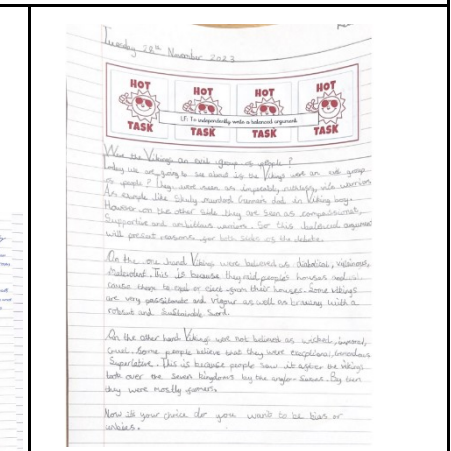 Tuesday 28th November 2023
HOT HOT HOT HOT
LF: To independently write a balanced argument
TASK TASK TASK TASK
Were the Vikings an evil group of people?
Today we are going to see about is the Vikings were an evil group
of people? They were seen as ruthless, vile warriors
An example like murdered dad in Viking boy.
However on the other side they are seen as compassionate,
Supportive and ambitious warriors. So this balanced argument
will present reasons for both sides of the debate.
On the one hand Vikings were believed as diabolical, villainous,
Malevolent. This is because they raid people's houses and
cause them to or eject from their houses. Some vikings
are very and vigour as well as brawling with a
robust and Sustainable Sword.
On the other hand Vikings were not believed as wicked, immoral,
Cruel. Some people believe that they were exceptional,
Superlative. This is because people saw the vikings
took over the seven kingdoms by the anglo-Saxons. By then
they were mostly farmers.
Now its your choice do you want to be bias or
unbias.